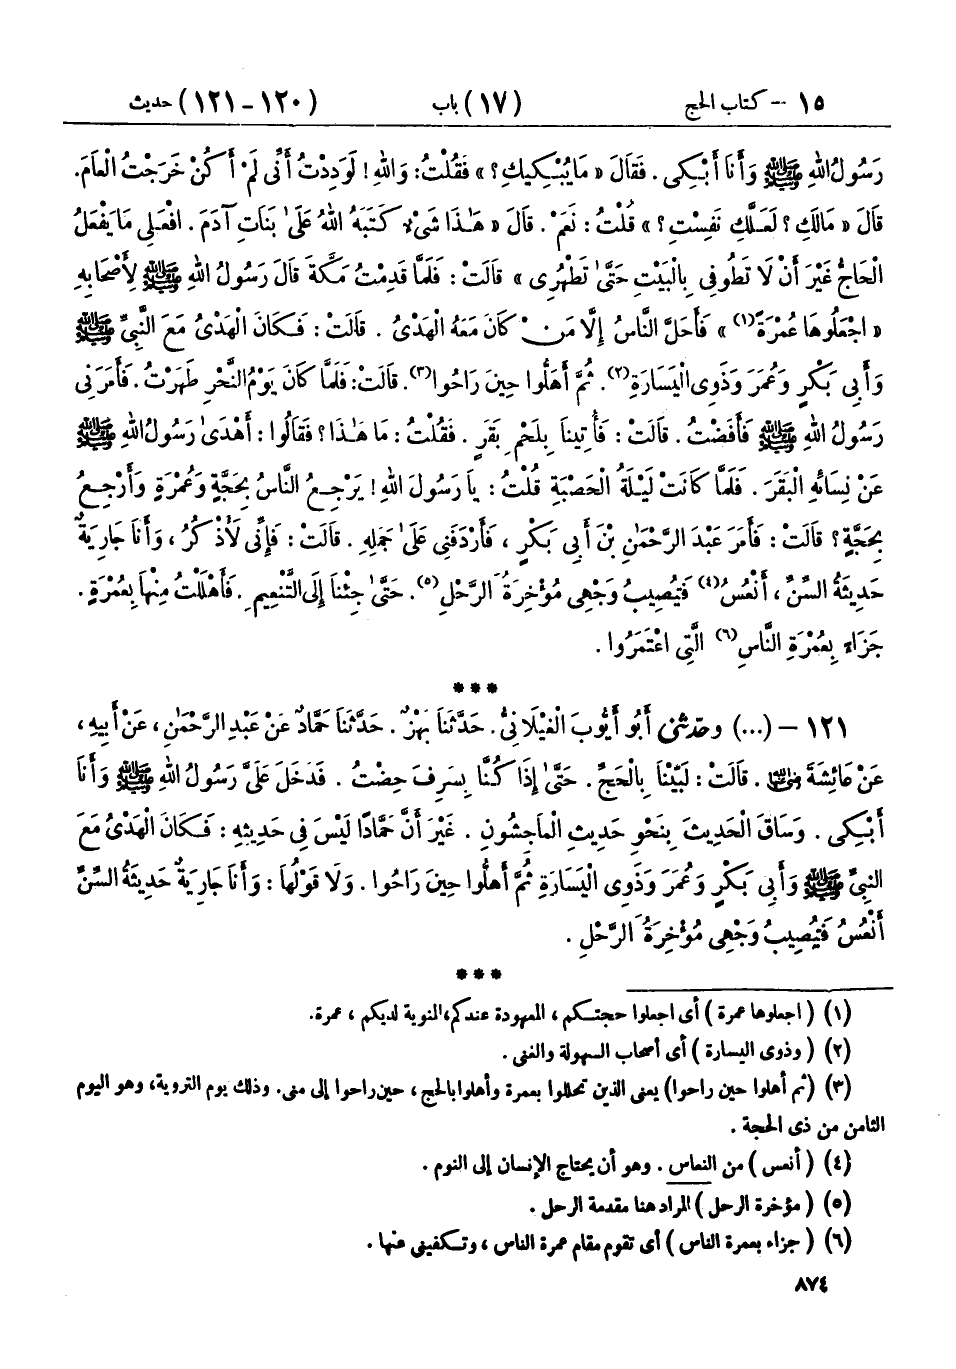 ١٥ – كتاب الحج (١٧) باب (١٢٠–١٢١) حديث
رَسُولُ اللهِ ﷺ وَأَنَا أَبْكِى . فَقَالَ « مَا يُبْكِيكِ؟ » فَقُلْتُ : وَاللهِ ! لَوَدِدْتُ أَنِّى لَمْ أَكُنْ خَرَجْتُ الْعَامَ.
قَالَ « مَالَكِ؟ لَعَلَّكِ نَفِسْتِ؟ » قُلْتُ : نَعَمْ . قَالَ « هَـٰذَا شَىْءٌ كَتَبَهُ اللهُ عَلَىٰ بَنَاتِ آدَمَ . افْعَلِى مَا يَفْعَلُ
الْحَاجُّ غَيْرَ أَنْ لَا تَطُوفِى بِالْبَيْتِ حَتَّىٰ تَطْهُرِى » قَالَتْ : فَلَمَّا قَدِمْتُ مَكَّةَ قَالَ رَسُولُ اللهِ ﷺ لِأَصْحَابِهِ
« اجْعَلُوهَا عُمْرَةً(١) » فَأَحَلَّ النَّاسُ إِلَّا مَنْ كَانَ مَعَهُ الْهَدْىُ . قَالَتْ : فَكَانَ الْهَدْىُ مَعَ النَّبِىِّ ﷺ
وَأَبِى بَكْرٍ وَعُمَرَ وَذَوِى الْيَسَارَةِ(٢). ثُمَّ أَهَلُّوا حِينَ رَاحُوا(٣). قَالَتْ : فَلَمَّا كَانَ يَوْمُ النَّحْرِ طَهَرْتُ . فَأَمَرَنِى
رَسُولُ اللهِ ﷺ فَأَفَضْتُ . قَالَتْ : فَأُتِينَا بِلَحْمِ بَقَرٍ . فَقُلْتُ : مَا هَـٰذَا؟ فَقَالُوا : أَهْدَىٰ رَسُولُ اللهِ ﷺ
عَنْ نِسَائِهِ الْبَقَرَ . فَلَمَّا كَانَتْ لَيْلَةُ الْحَصْبَةِ قُلْتُ : يَا رَسُولَ اللهِ ! يَرْجِعُ النَّاسُ بِحَجَّةٍ وَعُمْرَةٍ وَأَرْجِعُ
بِحَجَّةٍ؟ قَالَتْ : فَأَمَرَ عَبْدَ الرَّحْمَٰنِ بْنَ أَبِى بَكْرٍ ، فَأَرْدَفَنِى عَلَىٰ جَمَلِهِ . قَالَتْ : فَإِنِّى لَأَذْكُرُ ، وَأَنَا جَارِيَةٌ
حَدِيثَةُ السِّنِّ ، أَنْعُسُ(٤) فَتُصِيبُ وَجْهِى مُؤْخِرَةُ الرَّحْلِ(٥). حَتَّىٰ جِئْنَا إِلَى التَّنْعِيمِ . فَأَهْلَلْتُ مِنْهَا بِعُمْرَةٍ .
جَزَاءً بِعُمْرَةِ النَّاسِ(٦) الَّتِى اعْتَمَرُوا .
***
١٢١ – (...) وحدثنى أَبُو أَيُّوبَ الْغَيْلَانِىُّ. حَدَّثَنَا بَهْزٌ . حَدَّثَنَا حَمَّادٌ عَنْ عَبْدِ الرَّحْمَٰنِ ، عَنْ أَبِيهِ ،
عَنْ عَائِشَةَ رضي الله عنها . قَالَتْ : لَبَّيْنَا بِالْحَجِّ . حَتَّىٰ إِذَا كُنَّا بِسَرِفَ حِضْتُ . فَدَخَلَ عَلَىَّ رَسُولُ اللهِ ﷺ وَأَنَا
أَبْكِى . وَسَاقَ الْحَدِيثَ بِنَحْوِ حَدِيثِ الْمَاجِشُونِ . غَيْرَ أَنَّ حَمَّادًا لَيْسَ فِى حَدِيثِهِ : فَكَانَ الْهَدْىُ مَعَ
النَّبِىِّ ﷺ وَأَبِى بَكْرٍ وَعُمَرَ وَذَوِى الْيَسَارَةِ ثُمَّ أَهَلُّوا حِينَ رَاحُوا . وَلَا قَوْلُهَا : وَأَنَا جَارِيَةٌ حَدِيثَةُ السِّنِّ
أَنْعُسُ فَتُصِيبُ وَجْهِى مُؤْخِرَةُ الرَّحْلِ .
***
(١) ( اجعلوها عمرة ) أى اجعلوا حجتكم ، المعهودة عندكم، المنوية لديكم ، عمرة.
(٢) ( وذوى اليسارة ) أى أصحاب السهولة والغنى .
(٣) (ثم أهلوا حين راحوا) يعنى الذين تحللوا بعمرة وأهلوا بالحج ، حين راحوا إلى منى. وذلك يوم التروية، وهو اليوم
الثامن من ذى الحجة .
(٤) ( أنعس ) من النعاس . وهو أن يحتاج الإنسان إلى النوم .
(٥) ( مؤخرة الرحل ) المراد هنا مقدمة الرحل .
(٦) ( جزاء بعمرة الناس ) أى تقوم مقام عمرة الناس ، وتكفينى عنها .
٨٧٤